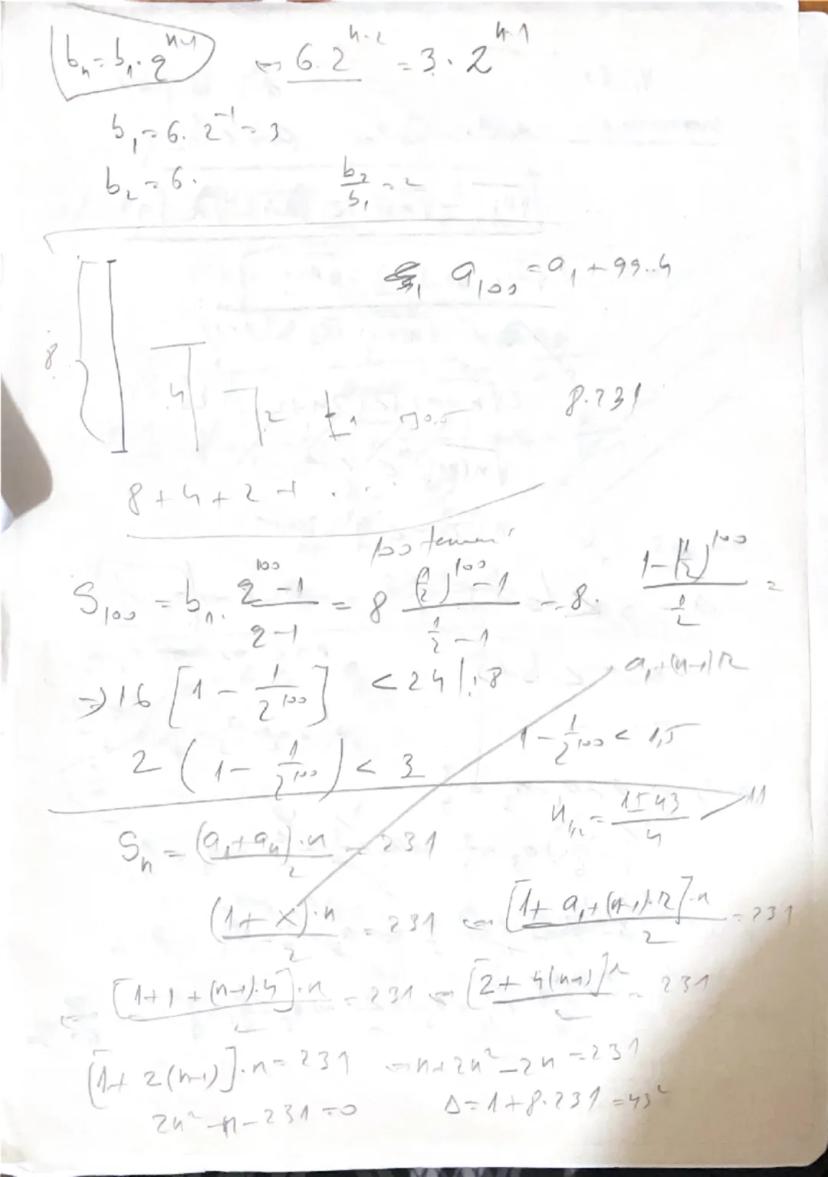 bₙ = b₁ · qⁿ⁻¹ ⇔ 6·2ⁿ⁻² = 3 · 2ⁿ⁻¹
b₁ = 6 · 2⁻¹ = 3
b₂ = 6 · b₂/b₁ = 2
a₁₀₀ = a₁ + 99·4
8
4 2 1 0.5
8·231
8 + 4 + 2 + . . .
100 termeni
S₁₀₀ = b₁ · (q¹⁰⁰ - 1)/(q - 1) = 8 ((1/2)¹⁰⁰ - 1)/(1/2 - 1) = 8 · (1 - (1/2)¹⁰⁰)/(1/2) =
a₁ + (n-1) r
⇒ 16 [1 - 1/2¹⁰⁰] < 24 | : 8
2 (1 - 1/2¹⁰⁰) < 3 1 - 1/2¹⁰⁰ < 1,5
n₁,₂ = (1 ± 43)/4 11
Sₙ = (a₁ + aₙ) · n/2 = 231
(1 + x) · n/2 = 231 ⇔ [1 + a₁ + (n-1) · r] · n/2 = 231
⇔ [1 + 1 + (n-1) · 4] · n/2 = 231 ⇔ [2 + 4(n-1)] n/2 = 231
[1 + 2(n-1)] · n = 231 ⇔ n + 2n² - 2n = 231
2n² - n - 231 = 0 Δ = 1 + 8 · 231 = 43²